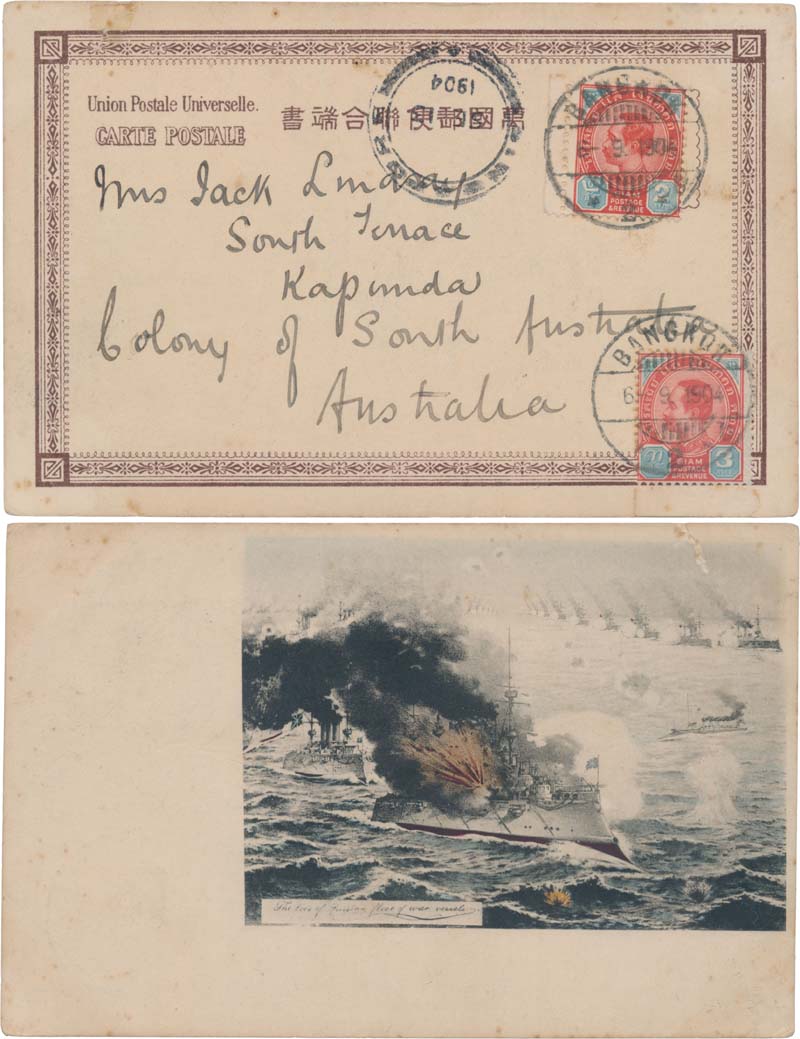 Union Postale Universelle.
CARTE POSTALE
萬國郵便聯合端書
1904
BANGKOK
9. 1904
2
SIAM
POSTAGE
&REVENUE
2
Mrs Jack Lindsay
South Terrace
Kapunda
Colony of South Australia
Australia
BANGKOK
6. 9. 1904
SIAM
POSTAGE
&REVENUE
3
The loss of Russian fleet of war vessels.